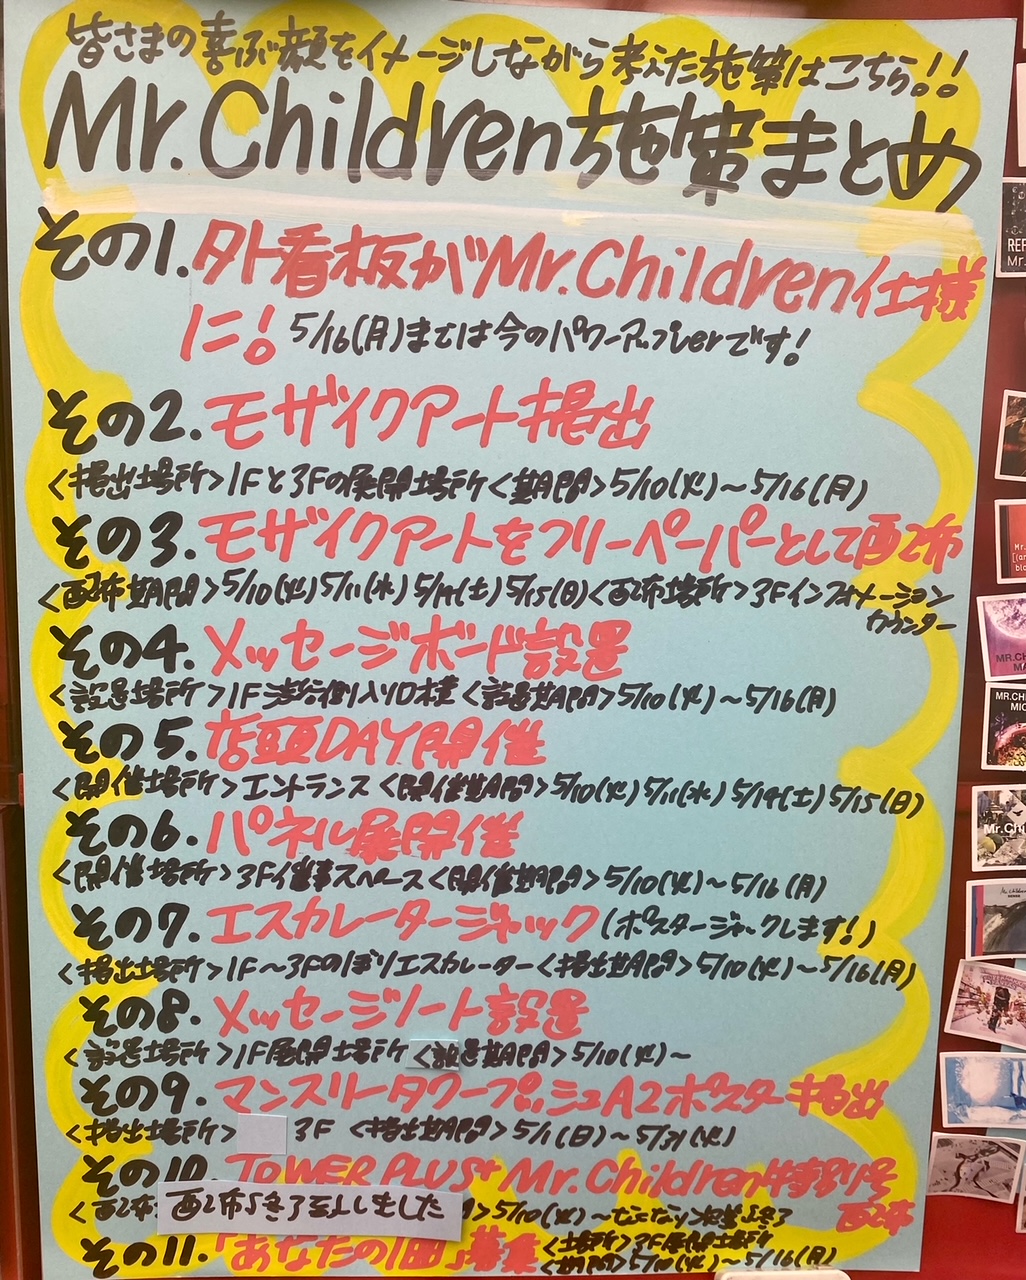 皆さまの喜ぶ顔をイメージしながら考えた施策はこちら!!
Mr.Children施策まとめ
その1.外看板がMr.Children仕様
に! 5/16(月)までは今のパワーアップverです!
その2.モザイクアート掲出
<掲出場所>1Fと3Fの展開場所<期間>5/10(火)~5/16(月)
その3.モザイクアートをフリーペーパーとして配布
<配布期間>5/10(火)5/11(水)5/14(土)5/15(日)<配布場所>3Fインフォメーション
カウンター
その4.メッセージボード設置
<設置場所>1F渋谷側入り口横<設置期間>5/10(火)~5/16(月)
その5.店頭DAY開催
<開催場所>エントランス<開催期間>5/10(火)5/11(水)5/14(土)5/15(日)
その6.パネル展開催
<開催場所>3F催事スペース<開催期間>5/10(火)~5/16(月)
その7.エスカレータージャック(ポスタージャックします!)
<掲出場所>1F~3Fのぼりエスカレーター<掲出期間>5/10(火)~5/16(月)
その8.メッセージノート設置
<設置場所>1F展開場所<設置期間>5/10(火)~
その9.マンスリータワープッシュA2ポスター掲出
<掲出場所>3F<掲出期間>5/1(日)~5/31(火)
その10.TOWER PLUS+ Mr.Children特別号
配布
<配布 配布は終了致しました 5/10(火)~なくなり次第終了
その11.「あなたの1曲」募集<場所>3F展開場所
<期間>5/10(火)~5/16(月)
Mr.Chi